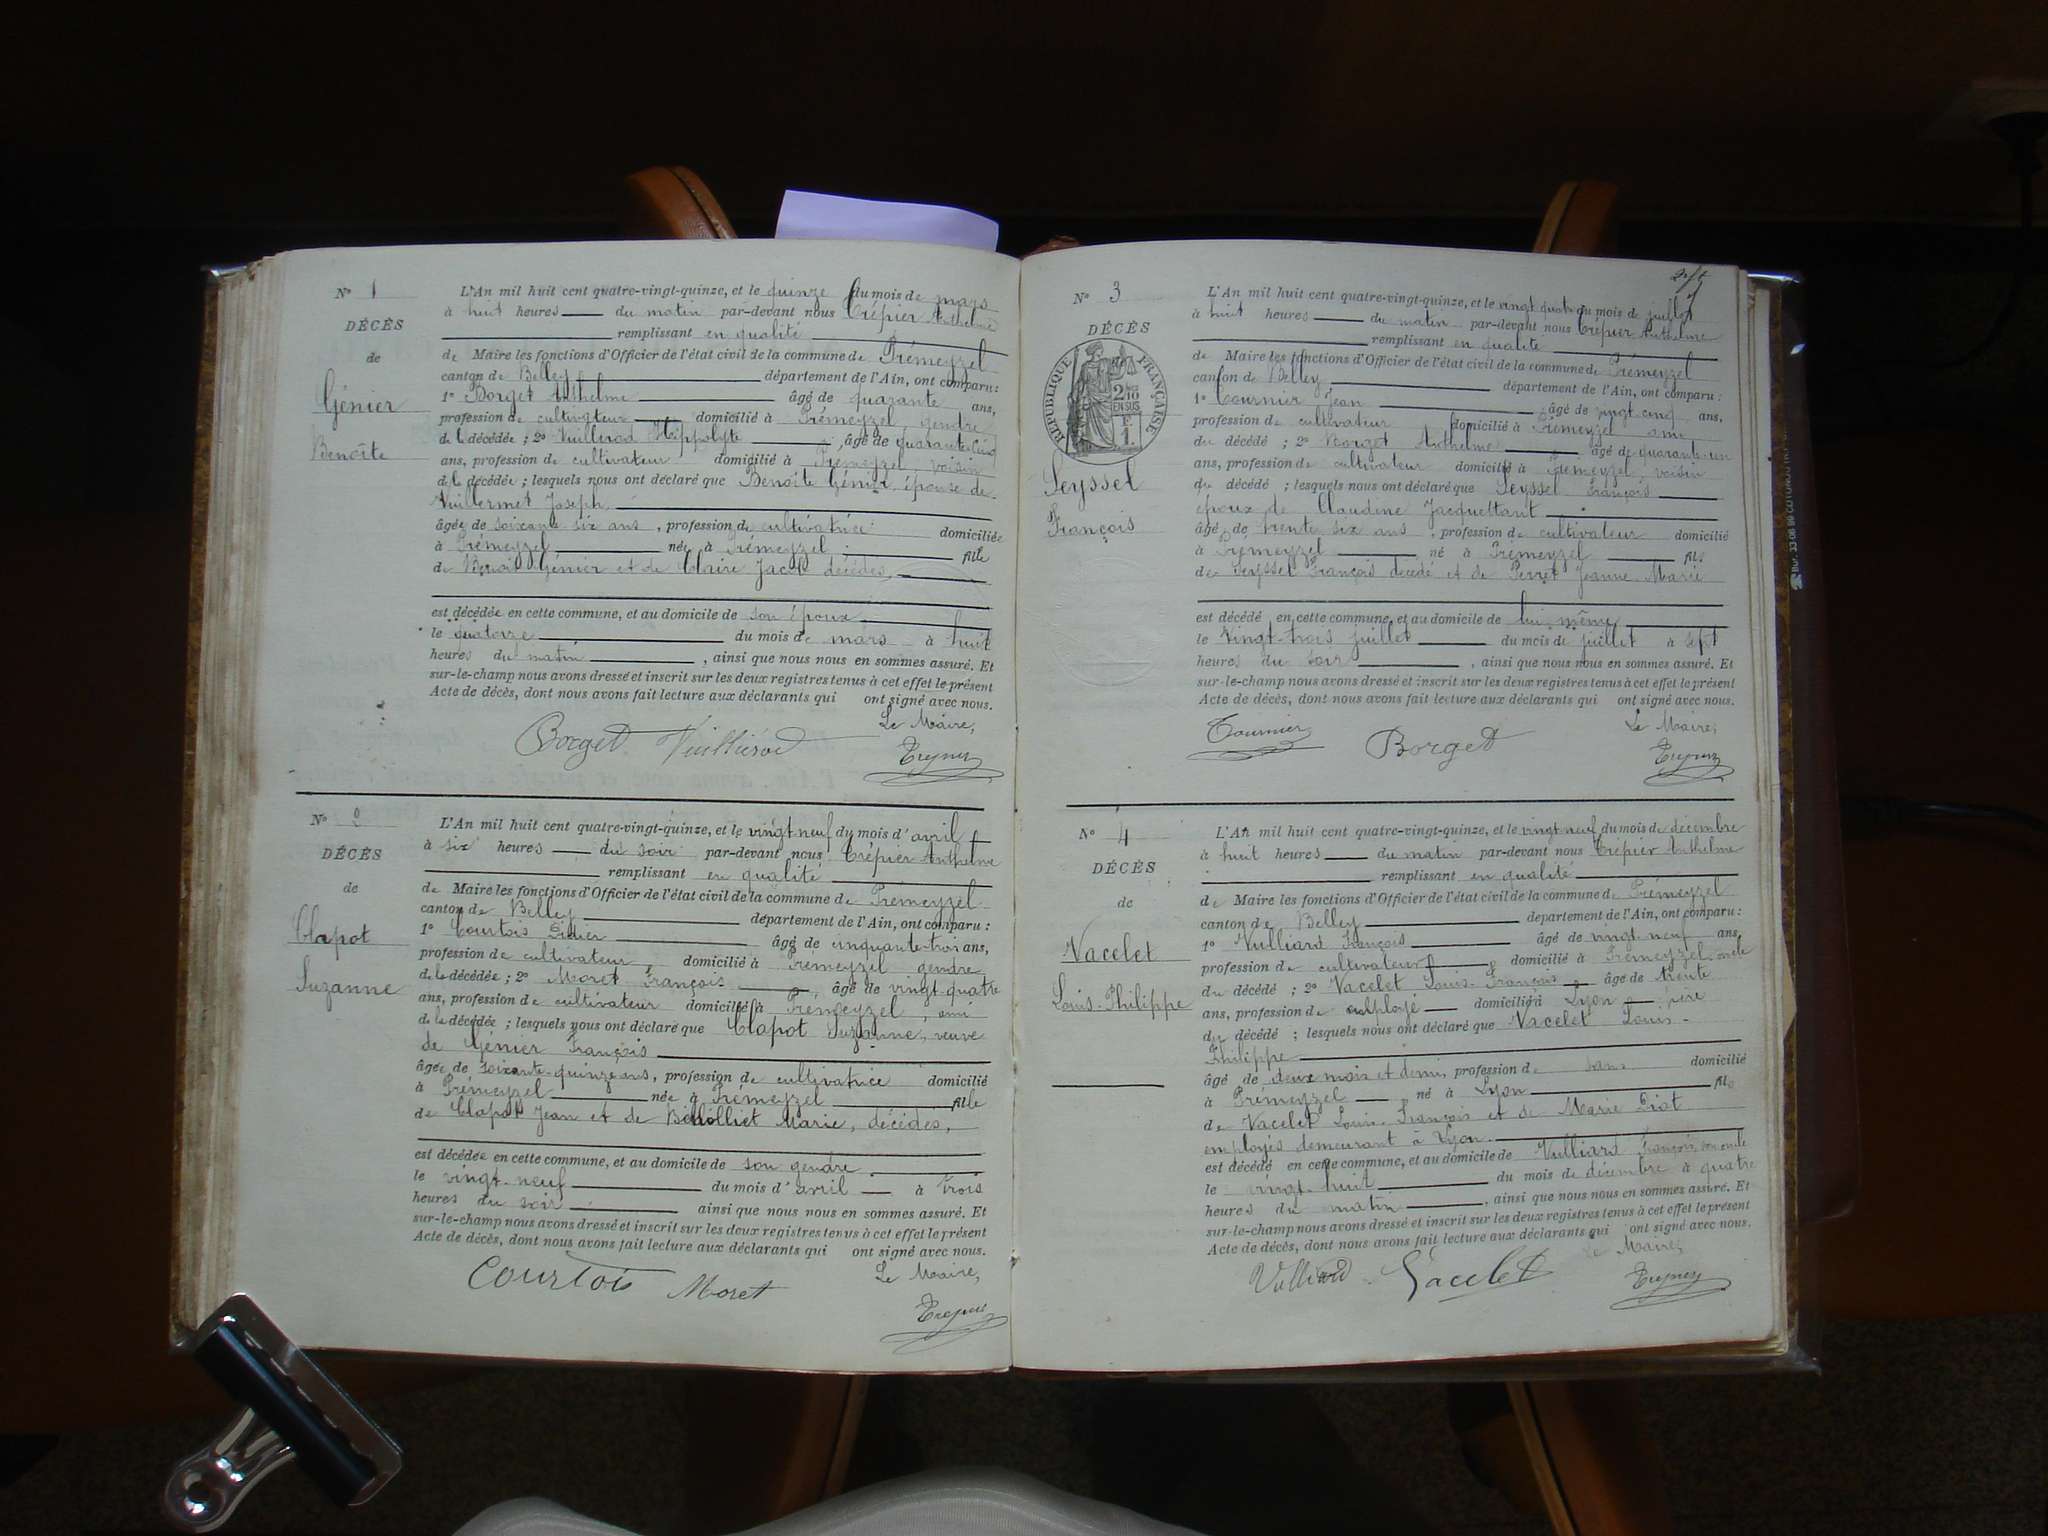 N° 1
DÉCÈS
de
Génier
Benoîte
L'An mil huit cent quatre-vingt-quinze, et le quinze du mois de mars
à huit heures du matin par-devant nous Crépier Anthelme
remplissant en qualité
de Maire les fonctions d'Officier de l'état civil de la commune de Prémeyzel
canton de Belley département de l'Ain, ont comparu :
1° Borget Anthelme âgé de quarante ans,
profession de cultivateur domicilié à Prémeyzel, gendre
de la décédée ; 2° Vuillerod Hippolyte âgé de quarante cinq
ans, profession de cultivateur domicilié à Prémeyzel, voisin
de la décédée ; lesquels nous ont déclaré que Benoîte Génier épouse de
Vuillermet Joseph
âgée de soixante six ans, profession de cultivatrice domiciliée
à Prémeyzel née à Prémeyzel fille
de Benoit Génier et de Claire Jacob décédés,
est décédée en cette commune, et au domicile de son époux
le quatorze du mois de mars à huit
heures du matin, ainsi que nous nous en sommes assuré. Et
sur-le-champ nous avons dressé et inscrit sur les deux registres tenus à cet effet le présent
Acte de décès, dont nous avons fait lecture aux déclarants qui ont signé avec nous.
Le Maire,
Borget Vuillerod
N° 2
DÉCÈS
de
Clapot
Suzanne
L'An mil huit cent quatre-vingt-quinze, et le vingt neuf du mois d'avril
à six heures du soir par-devant nous Crépier Anthelme
remplissant en qualité
de Maire les fonctions d'Officier de l'état civil de la commune de Prémeyzel
canton de Belley département de l'Ain, ont comparu :
1° Courtois Didier âgé de cinquante-trois ans,
profession de cultivateur, domicilié à Prémeyzel gendre
de la décédée ; 2° Moret François, âgé de vingt-quatre
ans, profession de cultivateur domicilié à Prémeyzel, ami
de la décédée ; lesquels nous ont déclaré que Clapot Suzanne, veuve
de Génier François
âgée de soixante-quinze ans, profession de cultivatrice domicilié
à Prémeyzel née à Prémeyzel fille
de Clapot Jean et de Marie, décédés,
est décédée en cette commune, et au domicile de son gendre
le vingt-neuf du mois d'avril à trois
heures du soir ainsi que nous nous en sommes assuré. Et
sur-le-champ nous avons dressé et inscrit sur les deux registres tenus à cet effet le présent
Acte de décès, dont nous avons fait lecture aux déclarants qui ont signé avec nous.
Le Maire,
Courtois Moret
N° 3
DÉCÈS
RÉPUBLIQUE FRANÇAISE
2/10
EN SUS
F.
1.
Seyssel
François
L'An mil huit cent quatre-vingt-quinze, et le vingt quatre du mois de juillet
à huit heures du matin par-devant nous Crépier Anthelme
remplissant en qualité
de Maire les fonctions d'Officier de l'état civil de la commune de Prémeyzel
canton de Belley département de l'Ain, ont comparu :
1° Tournier Jean âgé de vingt cinq ans,
profession de cultivateur domicilié à Prémeyzel ami
du décédé ; 2° Borget Anthelme âgé de quarante un
ans, profession de cultivateur domicilié à Prémeyzel, voisin
du décédé ; lesquels nous ont déclaré que Seyssel François
époux de Claudine Jacquettant
âgé de trente six ans, profession de cultivateur domicilié
à Prémeyzel né à Prémeyzel fils
de Seyssel François décédé et de Perret Jeanne Marie
est décédé en cette commune, et au domicile de lui même
le vingt-trois juillet du mois de juillet à sept
heures du soir, ainsi que nous nous en sommes assuré. Et
sur-le-champ nous avons dressé et inscrit sur les deux registres tenus à cet effet le présent
Acte de décès, dont nous avons fait lecture aux déclarants qui ont signé avec nous.
Le Maire,
Tournier Borget
N° 4
DÉCÈS
de
Vacelet
Louis-Philippe
L'An mil huit cent quatre-vingt-quinze, et le vingt neuf du mois de décembre
à huit heures du matin par-devant nous Crépier Anthelme
remplissant en qualité
de Maire les fonctions d'Officier de l'état civil de la commune de Prémeyzel
canton de Belley département de l'Ain, ont comparu :
1° Vulliard François âgé de vingt-neuf ans,
profession de cultivateur domicilié à Prémeyzel, oncle
du décédé ; 2° Vacelet Louis-François âgé de trente
ans, profession de employé domicilié à Lyon père
du décédé ; lesquels nous ont déclaré que Vacelet Louis-
Philippe
âgé de deux mois et demi, profession de sans domicilié
à Prémeyzel né à Lyon fils
de Vacelet Louis-François et de Marie Diot
employés demeurant à Lyon.
est décédé en cette commune, et au domicile de Vulliard François, son oncle
le vingt-huit du mois de décembre à quatre
heures du matin, ainsi que nous nous en sommes assuré. Et
sur-le-champ nous avons dressé et inscrit sur les deux registres tenus à cet effet le présent
Acte de décès, dont nous avons fait lecture aux déclarants qui ont signé avec nous.
Le Maire,
Vulliard Vacelet